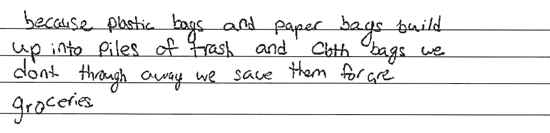 because plastic bags and paper bags build
up into piles of trash and cloth bags we
dont through away we save them for are
groceries